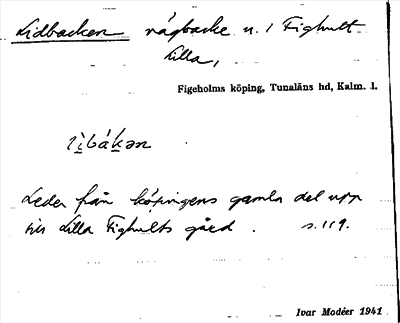 Lidbacken vägbacke u. 1 Fighult
Lilla,
Figeholms köping, Tunaläns hd, Kalm. l.
lìbákən
Leder från köpingens gamla del upp
till Lilla Fighults gård. s. 119.
Ivar Modéer 1941